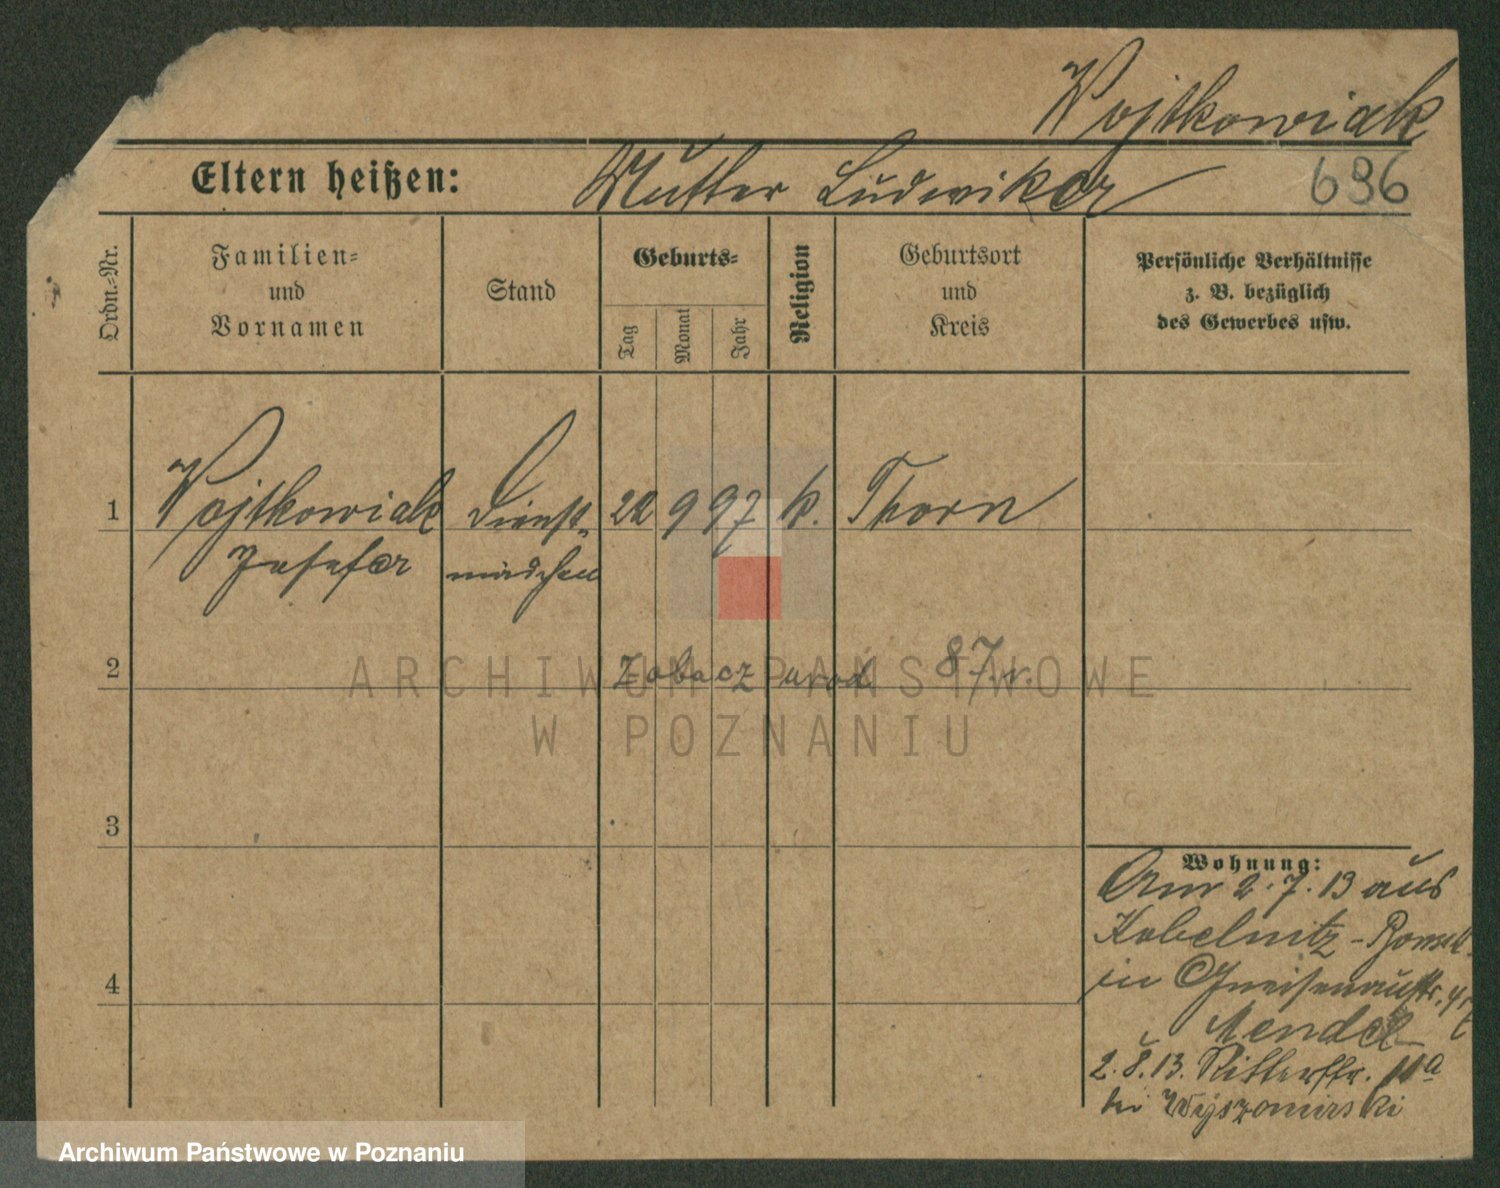 Wojtkowiak
Eltern heißen: Mutter Ludwika
696
Ordn.-Nr.
Familien-
und
Vornamen
Stand
Geburts-
Tag
Monat
Jahr
Religion
Geburtsort
und
Kreis
Persönliche Verhältnisse
z. B. bezüglich
des Gewerbes usw.
1 Wojtkowiak Dienst- 22 9 97 k. Thorn
Josefa mädchen
2 Zobacz urod 87.r.
3
4
Wohnung:
Am 2.7.13 aus
Kobelnitz -
in Gneisenaustr.
Mendel
2.8.13. Ritterstr. 11a
bei Wyszomirski
ARCHIWUM PAŃSTWOWE
W POZNANIU
Archiwum Państwowe w Poznaniu